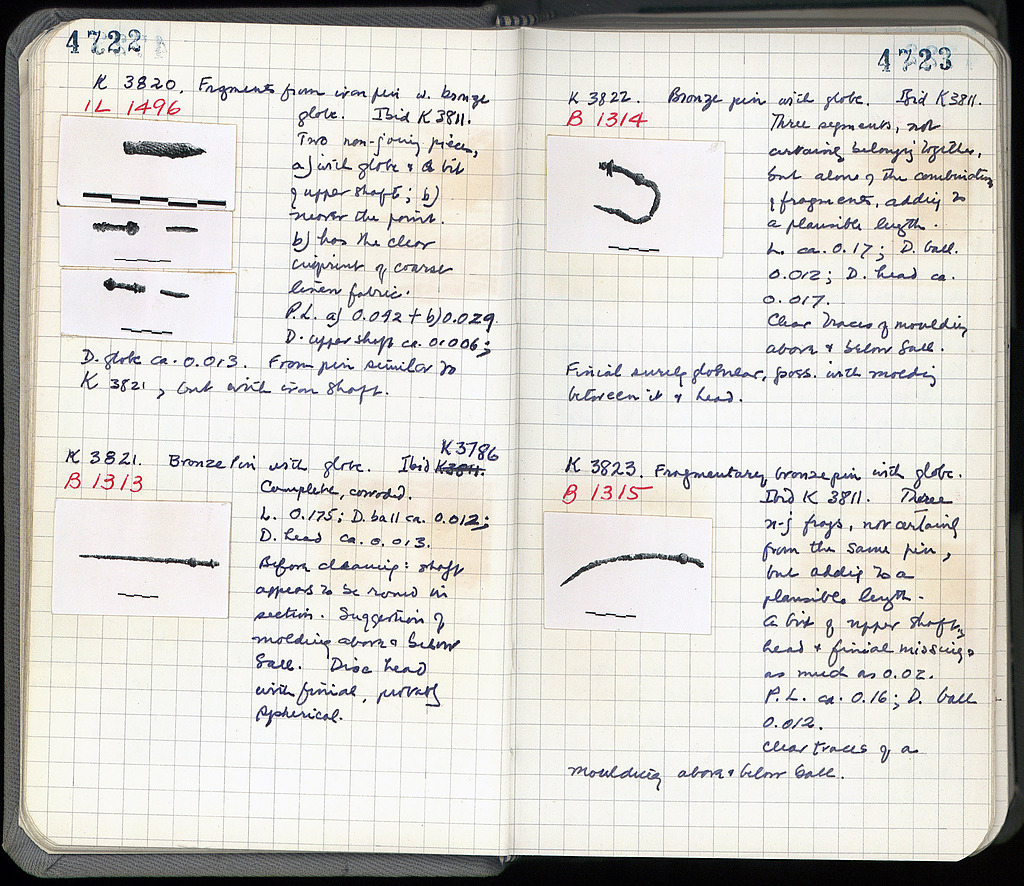 4722
K 3820. Fragments from iron pin w. bronze
IL 1496
globe. Ibid K 3811.
Two non-joining pieces,
a) with globe + bit
of upper shaft; b)
nearer the point.
b) has the clear
imprint of coarse
linen fabric.
P.L. a) 0.042 + b) 0.029.
D. upper shaft ca. 0.006;
D. globe ca. 0.013. From pin similar to
K 3821, but with iron shaft.
K 3786
K 3821. Bronze Pin with globe. Ibid K3811.
B 1313
Complete, corroded.
L. 0.175; D. ball ca. 0.012;
D. head ca. 0.013.
Before cleaning: shaft
appears to be round in
section. Suggestion of
molding above & below
ball. Disc head
with finial, probably
spherical.
4723
K 3822. Bronze pin with globe. Ibid K3811.
B 1314
Three segments, not
certainly belonging together,
but alone of the combination
of fragments, adding to
a plausible length.
L. ca. 0.17; D. ball
0.012; D. head ca.
0.017.
Clear traces of moulding
above & below ball.
Finial surely globular, poss. with molding
between it & head.
K 3823. Fragmentary bronze pin with globe.
B 1315
Ibid K 3811. Three
n-j frags, not certainly
from the same pin,
but adding to a
plausible length.
A bit of upper shaft,
head & finial missing,
as much as 0.02.
P.L. ca. 0.16; D. ball
0.012.
Clear traces of a
moulding above & below ball.